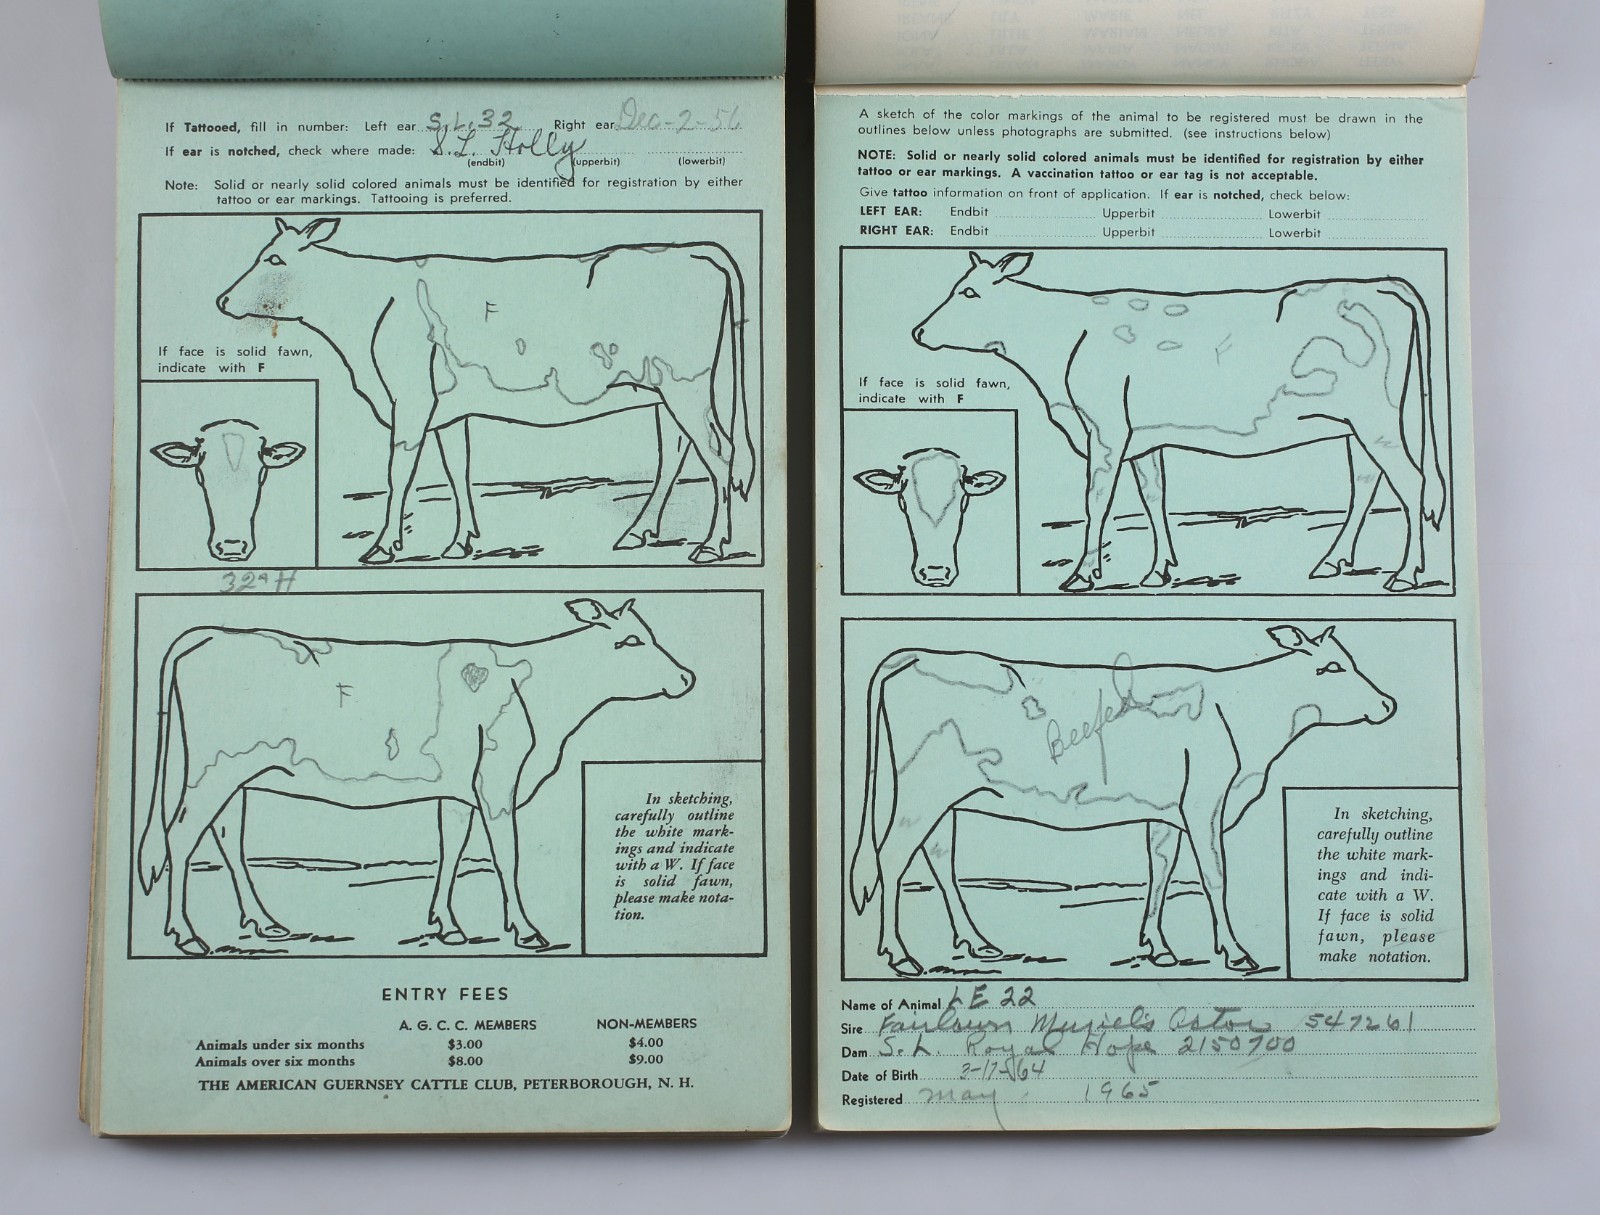 If Tattooed, fill in number: Left ear S.L.32 Right ear Dec-2-56
If ear is notched, check where made: S.L. Holly
(endbit) (upperbit) (lowerbit)
Note: Solid or nearly solid colored animals must be identified for registration by either
tattoo or ear markings. Tattooing is preferred.
F
If face is solid fawn,
indicate with F
32 H
F
In sketching,
carefully outline
the white mark-
ings and indicate
with a W. If face
is solid fawn,
please make nota-
tion.
ENTRY FEES
A. G. C. C. MEMBERS NON-MEMBERS
Animals under six months $3.00 $4.00
Animals over six months $8.00 $9.00
THE AMERICAN GUERNSEY CATTLE CLUB, PETERBOROUGH, N. H.
A sketch of the color markings of the animal to be registered must be drawn in the
outlines below unless photographs are submitted. (see instructions below)
NOTE: Solid or nearly solid colored animals must be identified for registration by either
tattoo or ear markings. A vaccination tattoo or ear tag is not acceptable.
Give tattoo information on front of application. If ear is notched, check below:
LEFT EAR: Endbit Upperbit Lowerbit
RIGHT EAR: Endbit Upperbit Lowerbit
F
If face is solid fawn,
indicate with F
Beefed
In sketching,
carefully outline
the white mark-
ings and indi-
cate with a W.
If face is solid
fawn, please
make notation.
Name of Animal LE 22
Sire Fairlawn Muriel's Astor 547261
Dam S. L. Royal Hope 2150700
Date of Birth 3-17-64
Registered May 1965